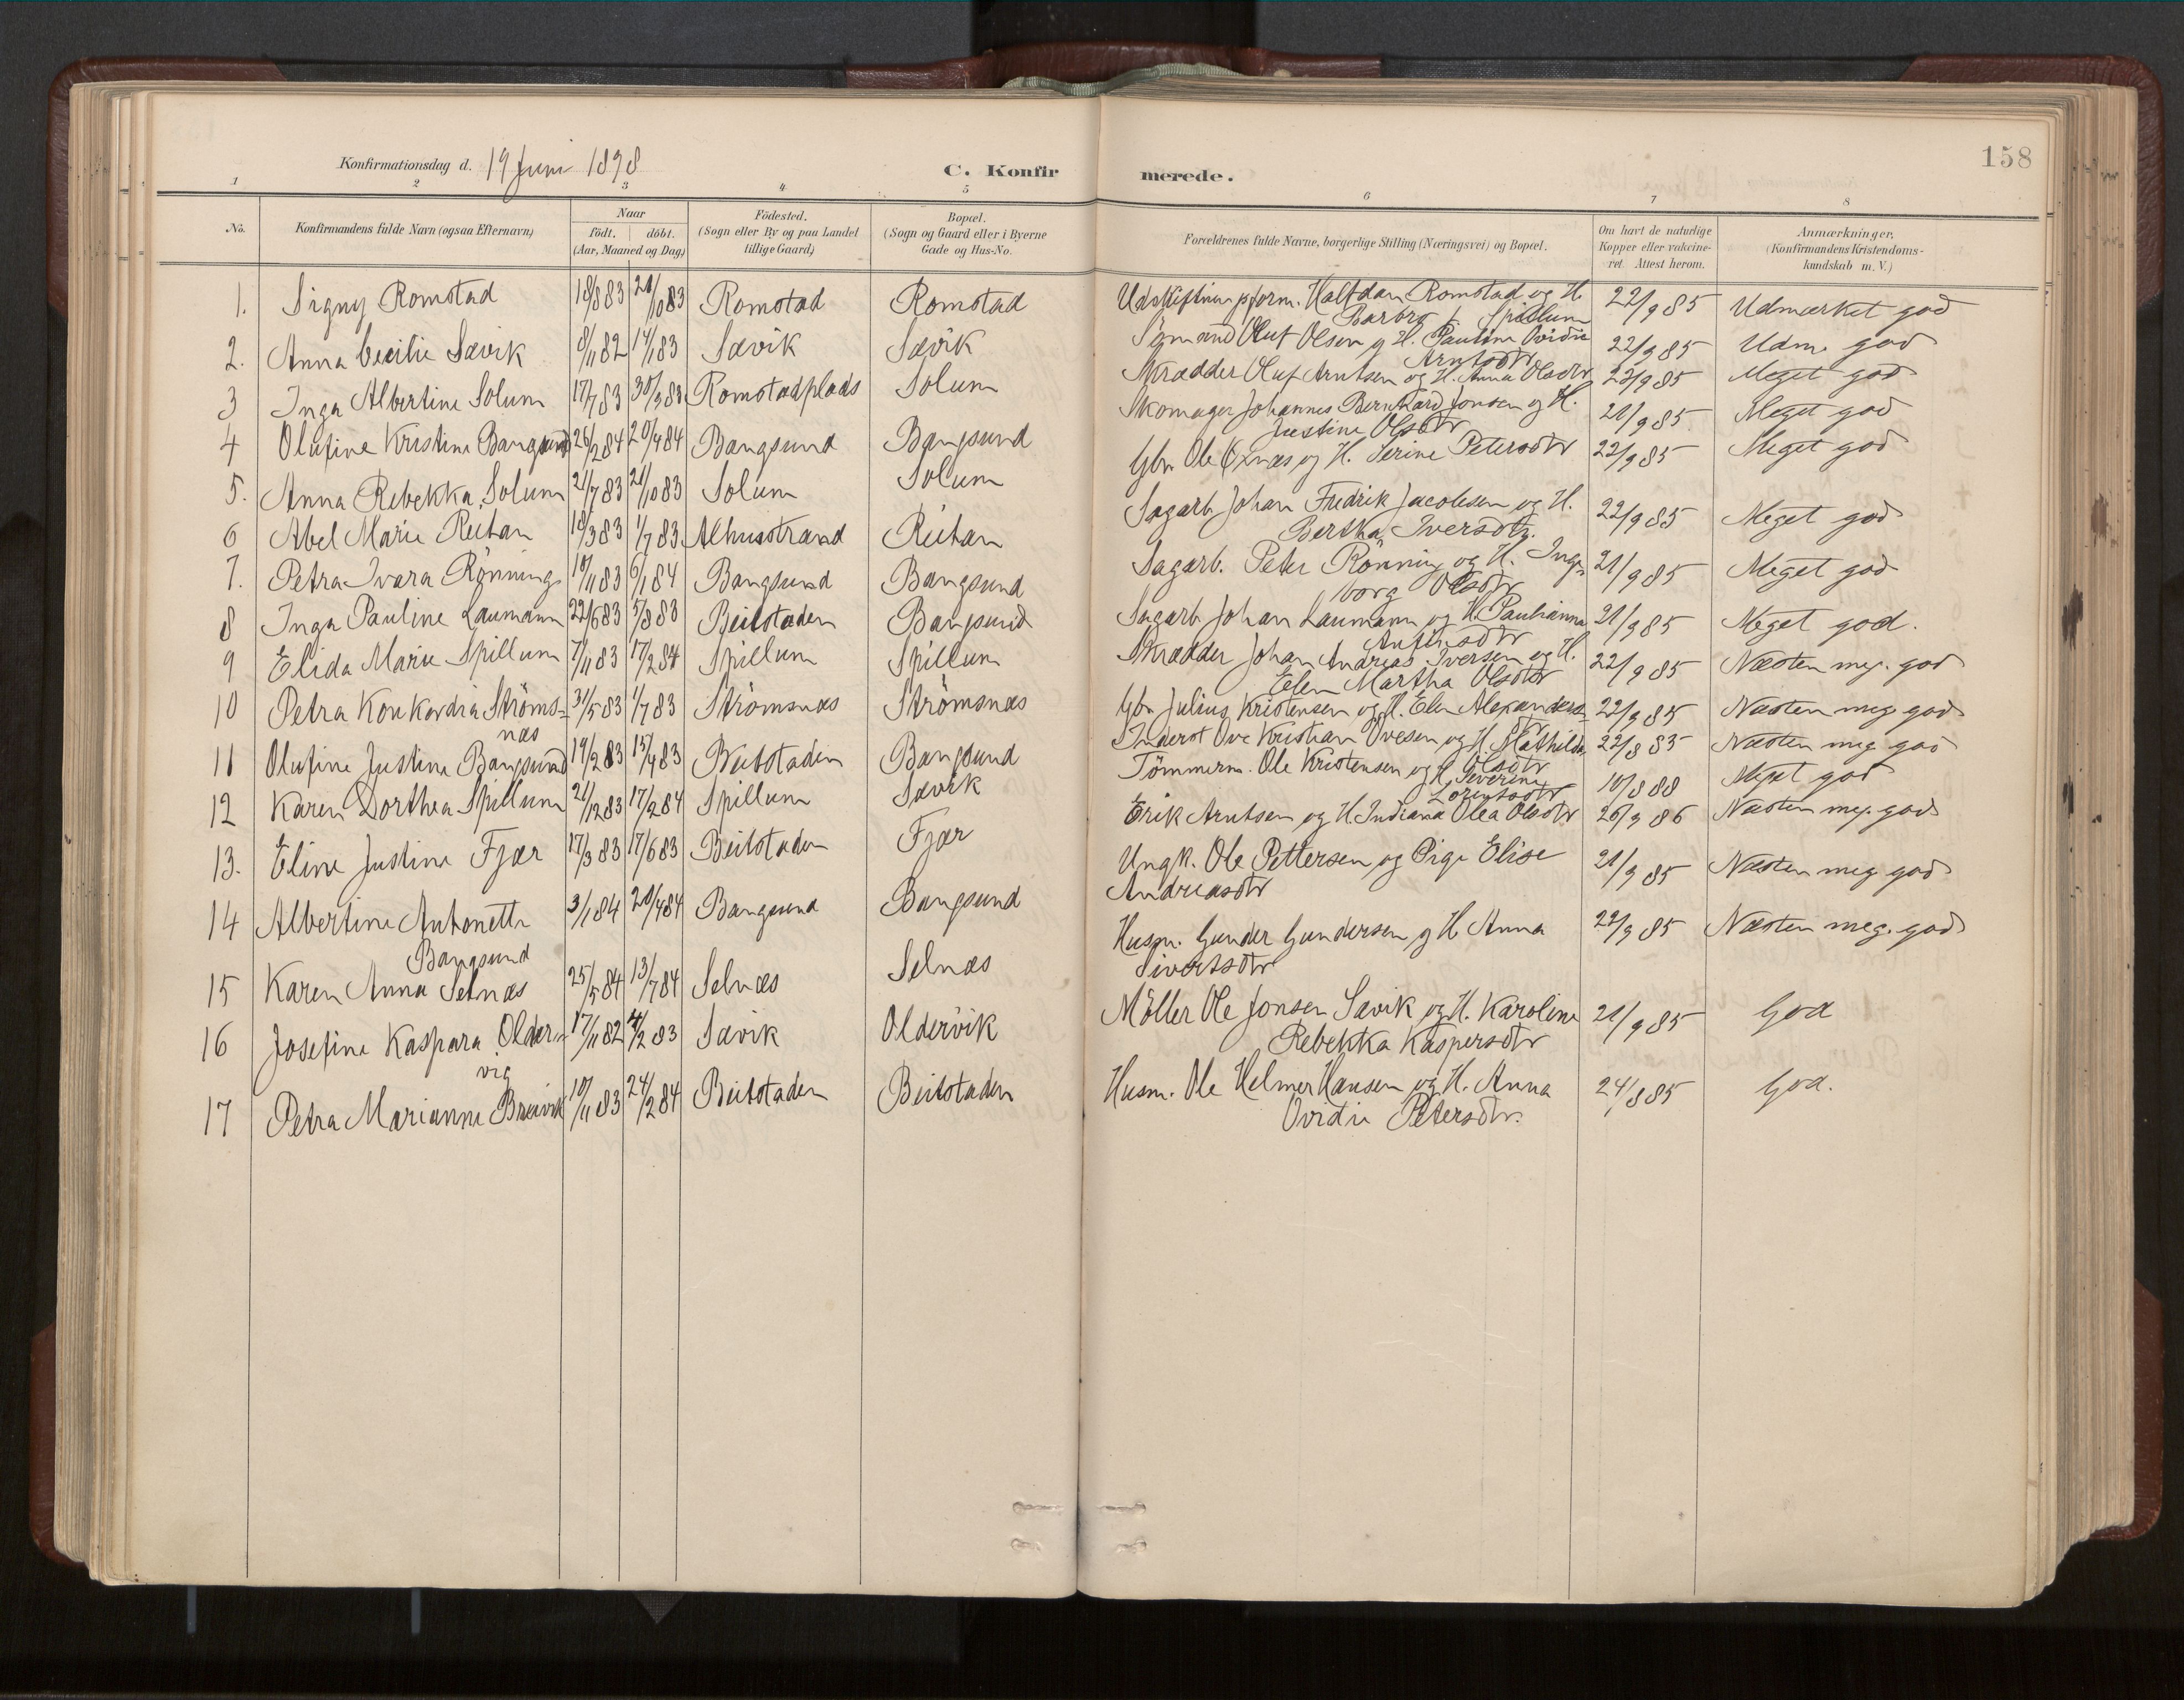 158
Konfirmationsdag d. 19 Juni 1898
C. Konfirmerede.
1 2 3 4 5 6 7 8
No.
Konfirmandens fulde Navn (ogsaa Efternavn)
Naar
födt. döbt.
(Aar, Maaned og Dag)
Födested.
(Sogn eller By og paa Landet
tillige Gaard)
Bopæl.
(Sogn og Gaard eller i Byerne
Gade og Hus-No.
Forældrenes fulde Navne, borgerlige Stilling (Næringsvei) og Bopæl.
Om havt de naturlige
Kopper eller vakcine-
ret. Attest herom.
Anmærkninger,
(Konfirmandens Kristendoms-
kundskab m. V.)
1. Signy Romstad 18/8 83 28/10 83 Romstad Romstad Udskiftningsform. Halfdan Romstad og H. Barbro f. Spillum 22/9 85 Udmærket god
2. Anna Cecilie Sævik 8/11 82 14/1 83 Sævik Sævik Sømand Oluf Olsen og H. Pauline Ovidie Arntsdtr 22/9 85 Udm. god
3 Inga Albertine Solum 17/7 83 30/9 83 Romstadplads Solum Skrædder Oluf Arntsen og H. Anna Olsdtr 22/9 85 Meget god
4 Olufine Kristine Bangsund 26/2 84 20/4 84 Bangsund Bangsund Skomager Johannes Bernhard Jonsen og H. Justine Olsdtr 21/9 85 Meget god
5. Anna Rebekka Solum 21/7 83 21/10 83 Solum Solum Gbr. Ole Øxnæs og H. Serine Petersdtr 22/9 85 Meget god
6 Abel Marie Reitan 18/3 83 1/7 83 Alhusstrand Reitan Sagarb. Johan Fredrik Jacobsen og H. Bertha Iversdtr. 22/9 85 Meget god
7. Petra Ivara Rönning 18/11 83 6/1 84 Bangsund Bangsund Sagarb. Peter Rönning og H. Inge- borg Olsdtr 21/9 85 Meget god
8 Inga Pauline Laumann 22/6 83 5/8 83 Beitstaden Bangsund Sagarb. Johan Laumann og H. Paulianna Antonsdtr 21/9 85 Meget god.
9 Elida Marie Spillum 7/11 83 17/2 84 Spillum Spillum Skrædder Johan Andreas Iversen og H. Elen Martha Olsdtr 22/9 85 Næsten meg. god
10 Petra Konkordia Ströms- næs 31/5 83 1/7 83 Strömsnæs Strömsnæs Gbr. Julius Kristensen og H. Elen Alexanders- 22/9 85 Næsten meg god
11 Olufine Justine Bangsund 19/2 83 15/4 83 Beitstaden Bangsund Inderst Ove Kristian Ovesen og H. Mathilde Olsdtr 22/8 85 Næsten meg god
12 Karen Dorthea Spillum 21/12 83 17/2 84 Spillum Sævik Tömmerm. Ole Kristensen og H. Severine Lorentsdtr 10/8 88 Meget god
13. Eline Justine Fjær 17/3 83 17/6 83 Beitstaden Fjær Erik Arntsen og H. Indiana Olea Olsdtr 26/9 86 Næsten meg. god
14 Albertine Antonette Bangsund 3/1 84 20/4 84 Bangsund Bangsund Ungk. Ole Pettersen og Pige Elise Andreasdtr 21/9 85 Næsten meg. god
15 Karen Anna Selnæs 25/5 84 13/7 84 Selnæs Selnæs Husm. Gunder Gundersen og H Anna Sivertsdtr 22/9 85 Næsten meg. god
16 Josefine Kaspara Older- vig 17/11 82 4/2 83 Sævik Oldervik Möller Ole Jonsen Sævik og H. Karoline Rebekka Kaspersdtr 21/9 85 God
17 Petra Marianne Breivik 18/11 83 24/2 84 Beitstaden Beitstaden Husm. Ole Helmer Hansen og H. Anna Ovidie Petersdtr. 24/8 85 God.